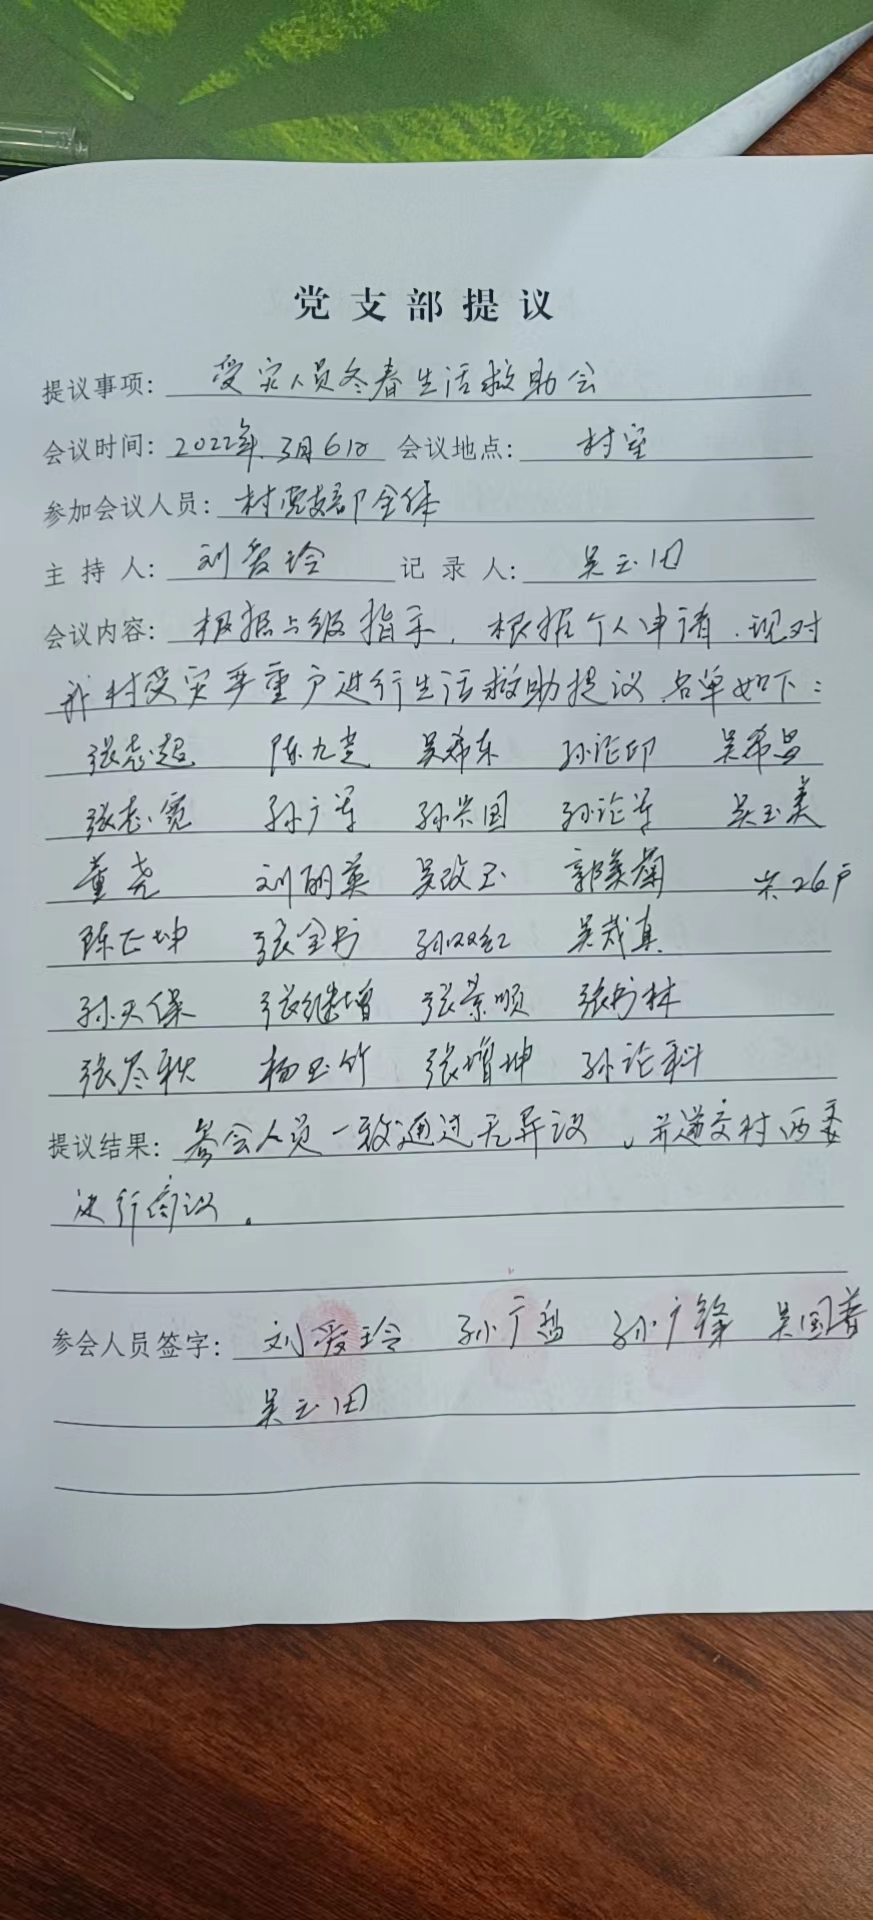 党支部提议
提议事项: 受灾人员冬春生活救助会
会议时间: 2022年.3月6日 会议地点: 村室
参加会议人员: 村党支部全体
主持人: 刘爱玲 记录人: 吴玉田
会议内容: 根据上级指示，根据个人申请.现对
我村受灾严重户进行生活救助提议.名单如下:
张志超 陈九党 吴希东 孙论印 吴希昌
张志宽 孙广军 孙兴国 孙论军 吴玉美
董尧 刘丽英 吴改玉 郭美菊 共26户
陈正坤 张全书 孙双红 吴茂真
孙天保 张继增 张景顺 张书林
张尽秋 杨玉竹 张增坤 孙论科
提议结果: 参会人员一致通过无异议，并递交村两委
进行商议。
参会人员签字: 刘爱玲 孙广 孙广锋 吴国善
吴玉田